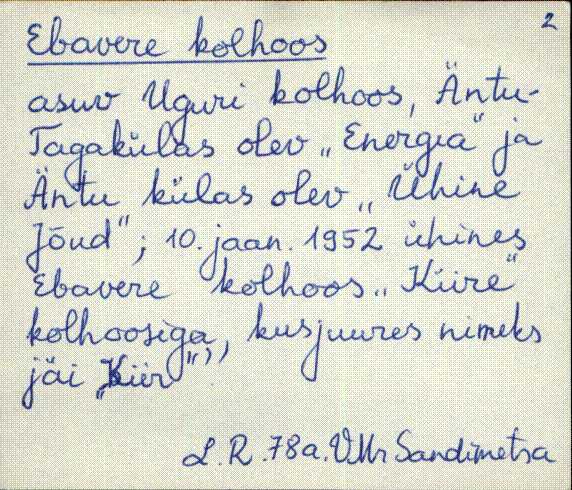 2
Ebavere kolhoos
asuv Uguri kolhoos, Äntu-
Tagakülas olev „Energia" ja
Äntu külas olev „Ühine
Jõud"; 10. jaan. 1952 ühines
Ebavere kolhoos „Kiire"
kolhoosiga, kusjuures nimeks
jäi „Kiir"
L.R. 78a. V.Mr Sandimetsa